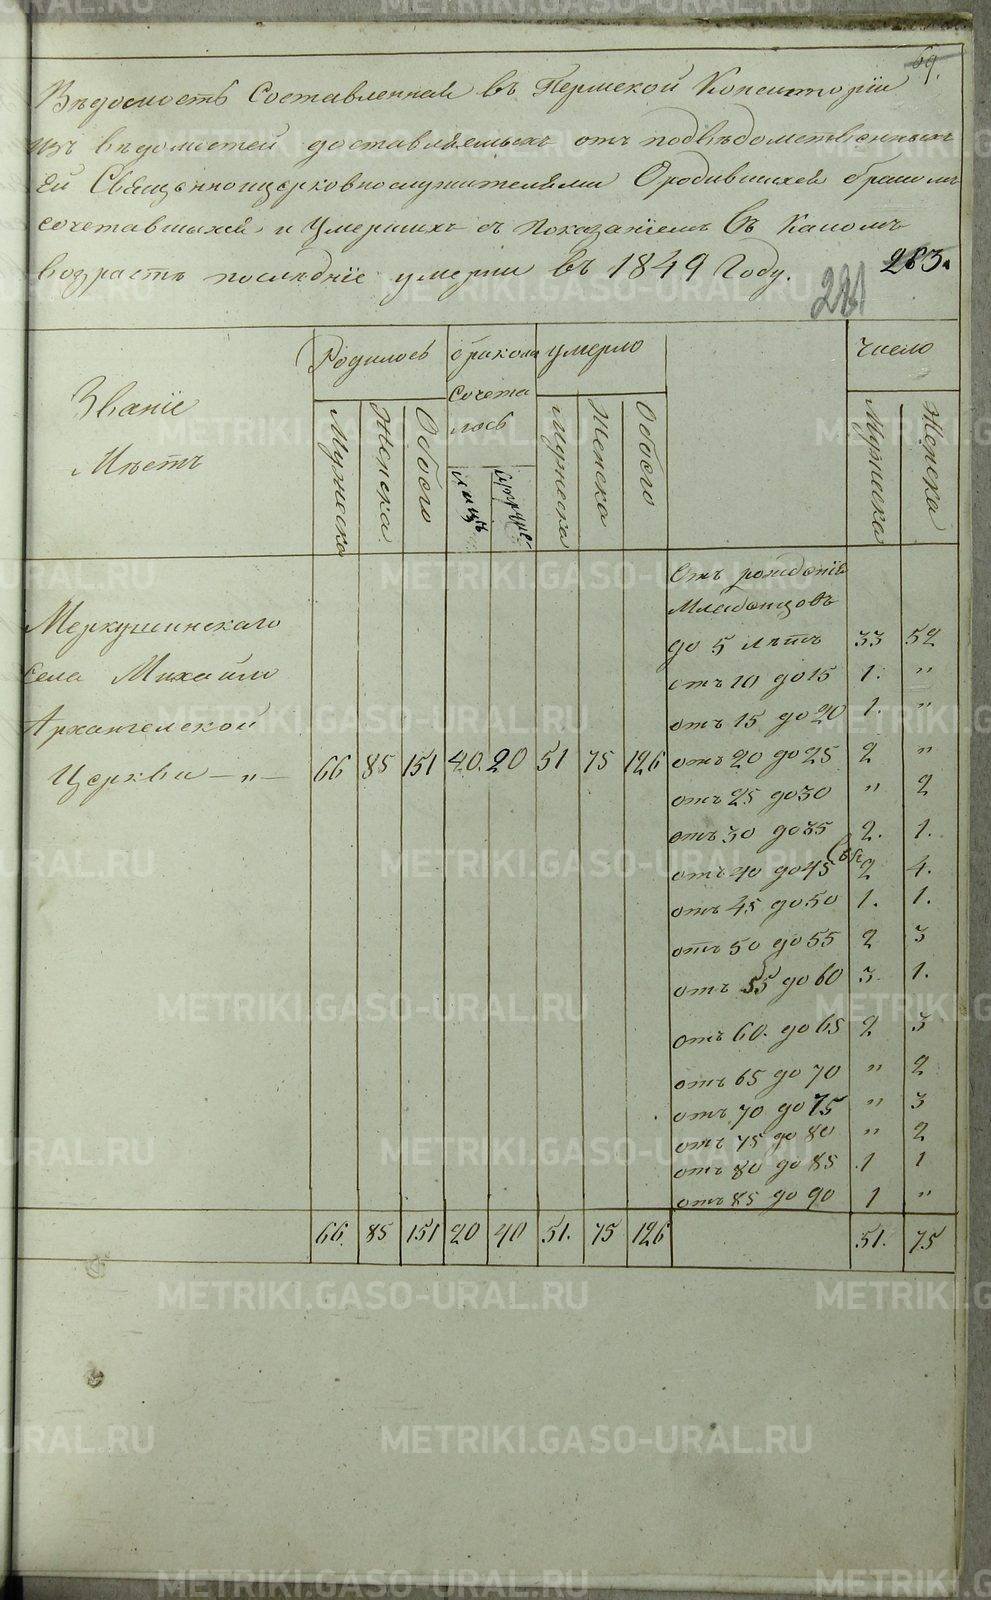 69.
Вѣдомость Составленная въ Пермской Консисторіи
изъ вѣдомостей доставляемыхъ отъ подвѣдомственныхъ
ей Священноцерковнослужителями О родившихся бракомъ
сочетавшихся и Умершихъ съ показаніемъ въ какомъ
возрастѣ послѣдніе умерли въ 1849 Году.
283.
281
Званіе
Мѣстъ
Родилось
бракомъ
сочета
лось
умерло
число
Мужеска
Женска
Обоего
лицъ
Мужеска
Женска
Обоего
Мужеска
Женска
Меркушинскаго
села Михайло
Архангельской
Церкви — „ — 66 85 151 40. 20 51 75 126
Отъ рожденія
Младенцовъ
до 5 лѣтъ 33 52
отъ 10 до 15 1. „
отъ 15 до 20 1. „
отъ 20 до 25 2 „
отъ 25 до 30 „ 2
отъ 30 до 35 2. 1.
отъ 40 до 45 2 4.
отъ 45 до 50 1. 1.
отъ 50 до 55 2 3
отъ 55 до 60 3 1.
отъ 60. до 65 2 3
отъ 65 до 70 „ 2
отъ 70 до 75 „ 3
отъ 75 до 80 „ 2
отъ 80 до 85 1 1
отъ 85 до 90 1 „
66. 85 151 20 40 51. 75 126 51. 75
METRIKI.GASO-URAL.RU